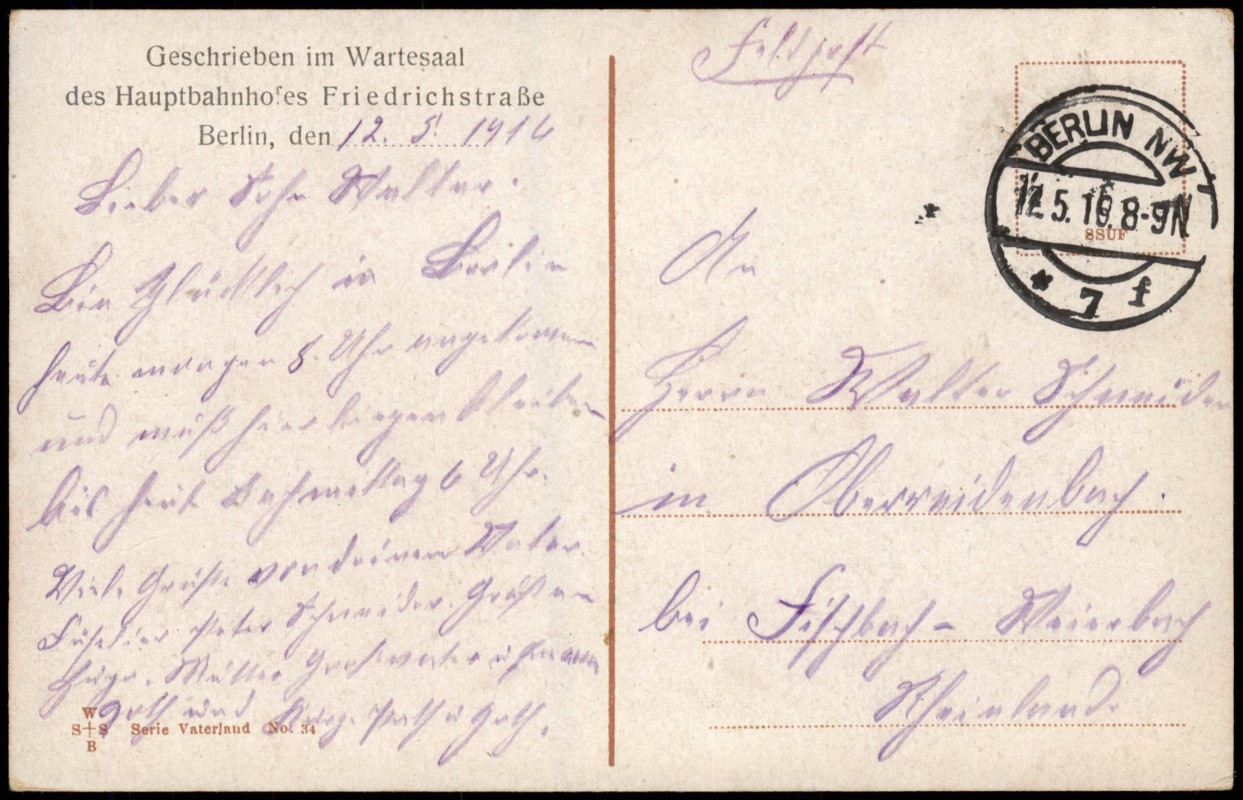 Geschrieben im Wartesaal
des Hauptbahnhofes Friedrichstraße
Berlin, den 12. 5. 1916
Lieber Sohn Walter.
Bin Glücklich in Berlin
heute morgen 8. Uhr angekommen
und muß hier liegen bleiben
bis heute Nachmittag 6 Uhr.
Viele Grüße von deinem Vater.
Füselier Peter Schneider. Gruß an
Hugo. Mutter Großvater u
Goth und Path u Goth.
W
S+S
B
Serie Vaterland No. 34
Feldpost
BERLIN NW
12.5.16.8-9N
* 7 f
SSUF
An
Herrn Walter Schneider
in Oberreidenbach.
bei Fischbach-Weierbach
Rheinland.